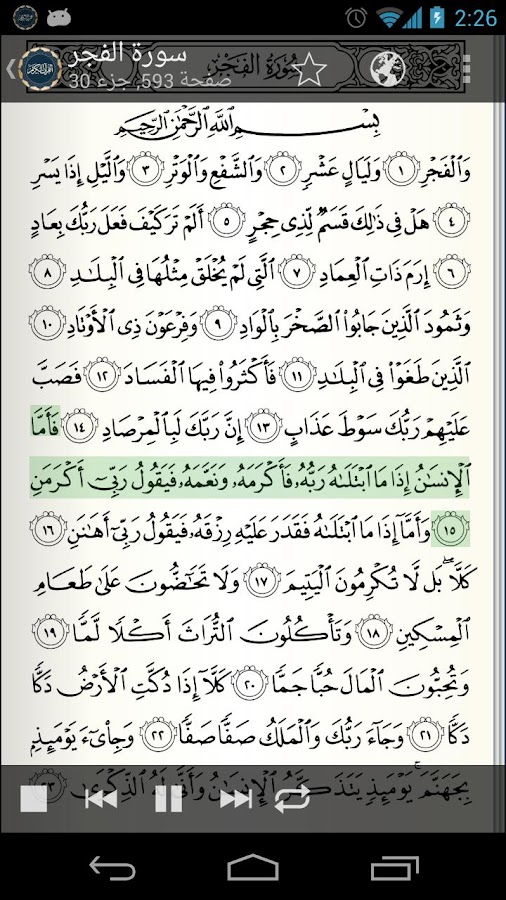 2:26
سورة الفجر
صفحة 593, جزء 30
سُورَةُ الفَجْرِ
بِسْمِ اللَّهِ الرَّحْمَٰنِ الرَّحِيمِ
وَالْفَجْرِ ١ وَلَيَالٍ عَشْرٍ ٢ وَالشَّفْعِ وَالْوَتْرِ ٣ وَاللَّيْلِ إِذَا يَسْرِ
٤ هَلْ فِي ذَٰلِكَ قَسَمٌ لِّذِي حِجْرٍ ٥ أَلَمْ تَرَ كَيْفَ فَعَلَ رَبُّكَ بِعَادٍ
٦ إِرَمَ ذَاتِ الْعِمَادِ ٧ الَّتِي لَمْ يُخْلَقْ مِثْلُهَا فِي الْبِلَٰدِ ٨
وَثَمُودَ الَّذِينَ جَابُوا الصَّخْرَ بِالْوَادِ ٩ وَفِرْعَوْنَ ذِي الْأَوْتَادِ ١٠
الَّذِينَ طَغَوْا فِي الْبِلَٰدِ ١١ فَأَكْثَرُوا فِيهَا الْفَسَادَ ١٢ فَصَبَّ
عَلَيْهِمْ رَبُّكَ سَوْطَ عَذَابٍ ١٣ إِنَّ رَبَّكَ لَبِالْمِرْصَادِ ١٤ فَأَمَّا
الْإِنسَٰنُ إِذَا مَا ابْتَلَىٰهُ رَبُّهُۥ فَأَكْرَمَهُۥ وَنَعَّمَهُۥ فَيَقُولُ رَبِّي أَكْرَمَنِ
١٥ وَأَمَّا إِذَا مَا ابْتَلَىٰهُ فَقَدَرَ عَلَيْهِ رِزْقَهُۥ فَيَقُولُ رَبِّي أَهَٰنَنِ ١٦
كَلَّا ۖ بَل لَّا تُكْرِمُونَ الْيَتِيمَ ١٧ وَلَا تَحَٰضُّونَ عَلَىٰ طَعَامِ
الْمِسْكِينِ ١٨ وَتَأْكُلُونَ التُّرَاثَ أَكْلًا لَّمًّا ١٩
وَتُحِبُّونَ الْمَالَ حُبًّا جَمًّا ٢٠ كَلَّا إِذَا دُكَّتِ الْأَرْضُ دَكًّا
دَكًّا ٢١ وَجَاءَ رَبُّكَ وَالْمَلَكُ صَفًّا صَفًّا ٢٢ وَجِا۟يءَ يَوْمَئِذٍ
بِجَهَنَّمَ ۚ يَوْمَئِذٍ يَتَذَكَّرُ الْإِنسَٰنُ وَأَنَّىٰ لَهُ الذِّكْرَىٰ ٢٣